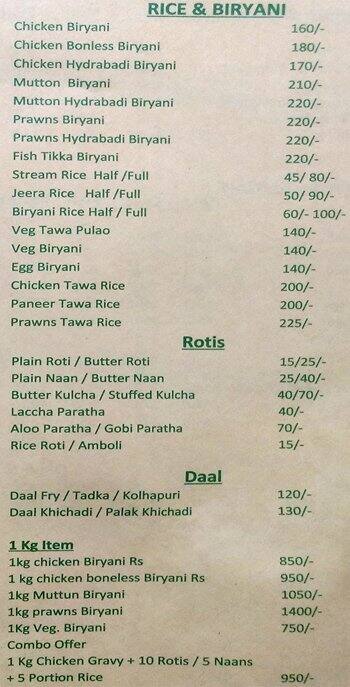 RICE & BIRYANI
Chicken Biryani 160/-
Chicken Bonless Biryani 180/-
Chicken Hydrabadi Biryani 170/-
Mutton Biryani 210/-
Mutton Hydrabadi Biryani 220/-
Prawns Biryani 220/-
Prawns Hydrabadi Biryani 220/-
Fish Tikka Biryani 220/-
Stream Rice Half /Full 45/ 80/-
Jeera Rice Half /Full 50/ 90/-
Biryani Rice Half / Full 60/- 100/-
Veg Tawa Pulao 140/-
Veg Biryani 140/-
Egg Biryani 140/-
Chicken Tawa Rice 200/-
Paneer Tawa Rice 200/-
Prawns Tawa Rice 225/-
Rotis
Plain Roti / Butter Roti 15/25/-
Plain Naan / Butter Naan 25/40/-
Butter Kulcha / Stuffed Kulcha 40/70/-
Laccha Paratha 40/-
Aloo Paratha / Gobi Paratha 70/-
Rice Roti / Amboli 15/-
Daal
Daal Fry / Tadka / Kolhapuri 120/-
Daal Khichadi / Palak Khichadi 130/-
1 Kg Item
1kg chicken Biryani Rs 850/-
1 kg chicken boneless Biryani Rs 950/-
1kg Muttun Biryani 1050/-
1kg prawns Biryani 1400/-
1Kg Veg. Biryani 750/-
Combo Offer
1 Kg Chicken Gravy + 10 Rotis / 5 Naans
+ 5 Portion Rice 950/-